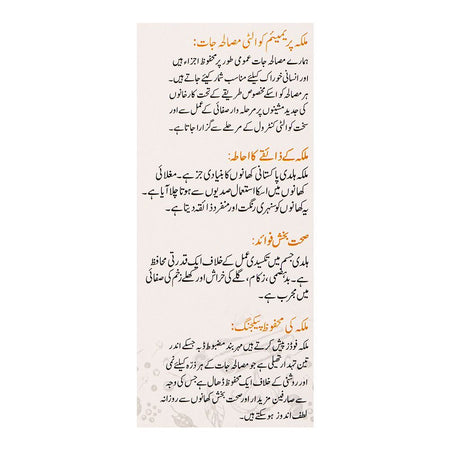 ملکہ پریمیئم کوالٹی مصالحہ جات:
ہمارے مصالحہ جات عمومی طور پر محفوظ اجزاء ہیں
اور انسانی خوراک کیلئے مناسب شمار کیئے جاتے ہیں۔
ہر مصالحہ کو اسکے مخصوص طریقے کے تحت کارخانوں
کی جدید مشینوں پر مرحلہ وار صفائی کے عمل سے اور
سخت کوالٹی کنٹرول کے مرحلے سے گزارا جاتا ہے۔
ملکہ کے ذائقے کا احاطہ:
ملکہ ہلدی پاکستانی کھانوں کا بنیادی جز ہے۔ مغلائی
کھانوں میں اسکا استعمال صدیوں سے ہوتا چلا آیا ہے۔
یہ کھانوں کو سنہری رنگت اور منفرد ذائقہ دیتا ہے۔
صحت بخش فوائد:
ہلدی جسم میں تکسیدی عمل کے خلاف ایک قدرتی محافظ
ہے۔ بدہضمی، زکام، گلے کی خراش اور کھلے زخم کی صفائی
میں مجرب ہے۔
ملکہ کی محفوظ پیکجنگ:
ملکہ فوڈز پیش کرتے ہیں مہر بند مضبوط ڈبہ جسکے اندر
تین تہہ دار تھیلی ہے جو مصالحہ جات کے ہر ذرّہ کیلئے نمی
اور روشنی کے خلاف ایک محفوظ ڈھال ہے جس کی وجہ
سے صارفین مزیدار اور صحت بخش کھانوں سے روزانہ
لطف اندوز ہو سکتے ہیں۔